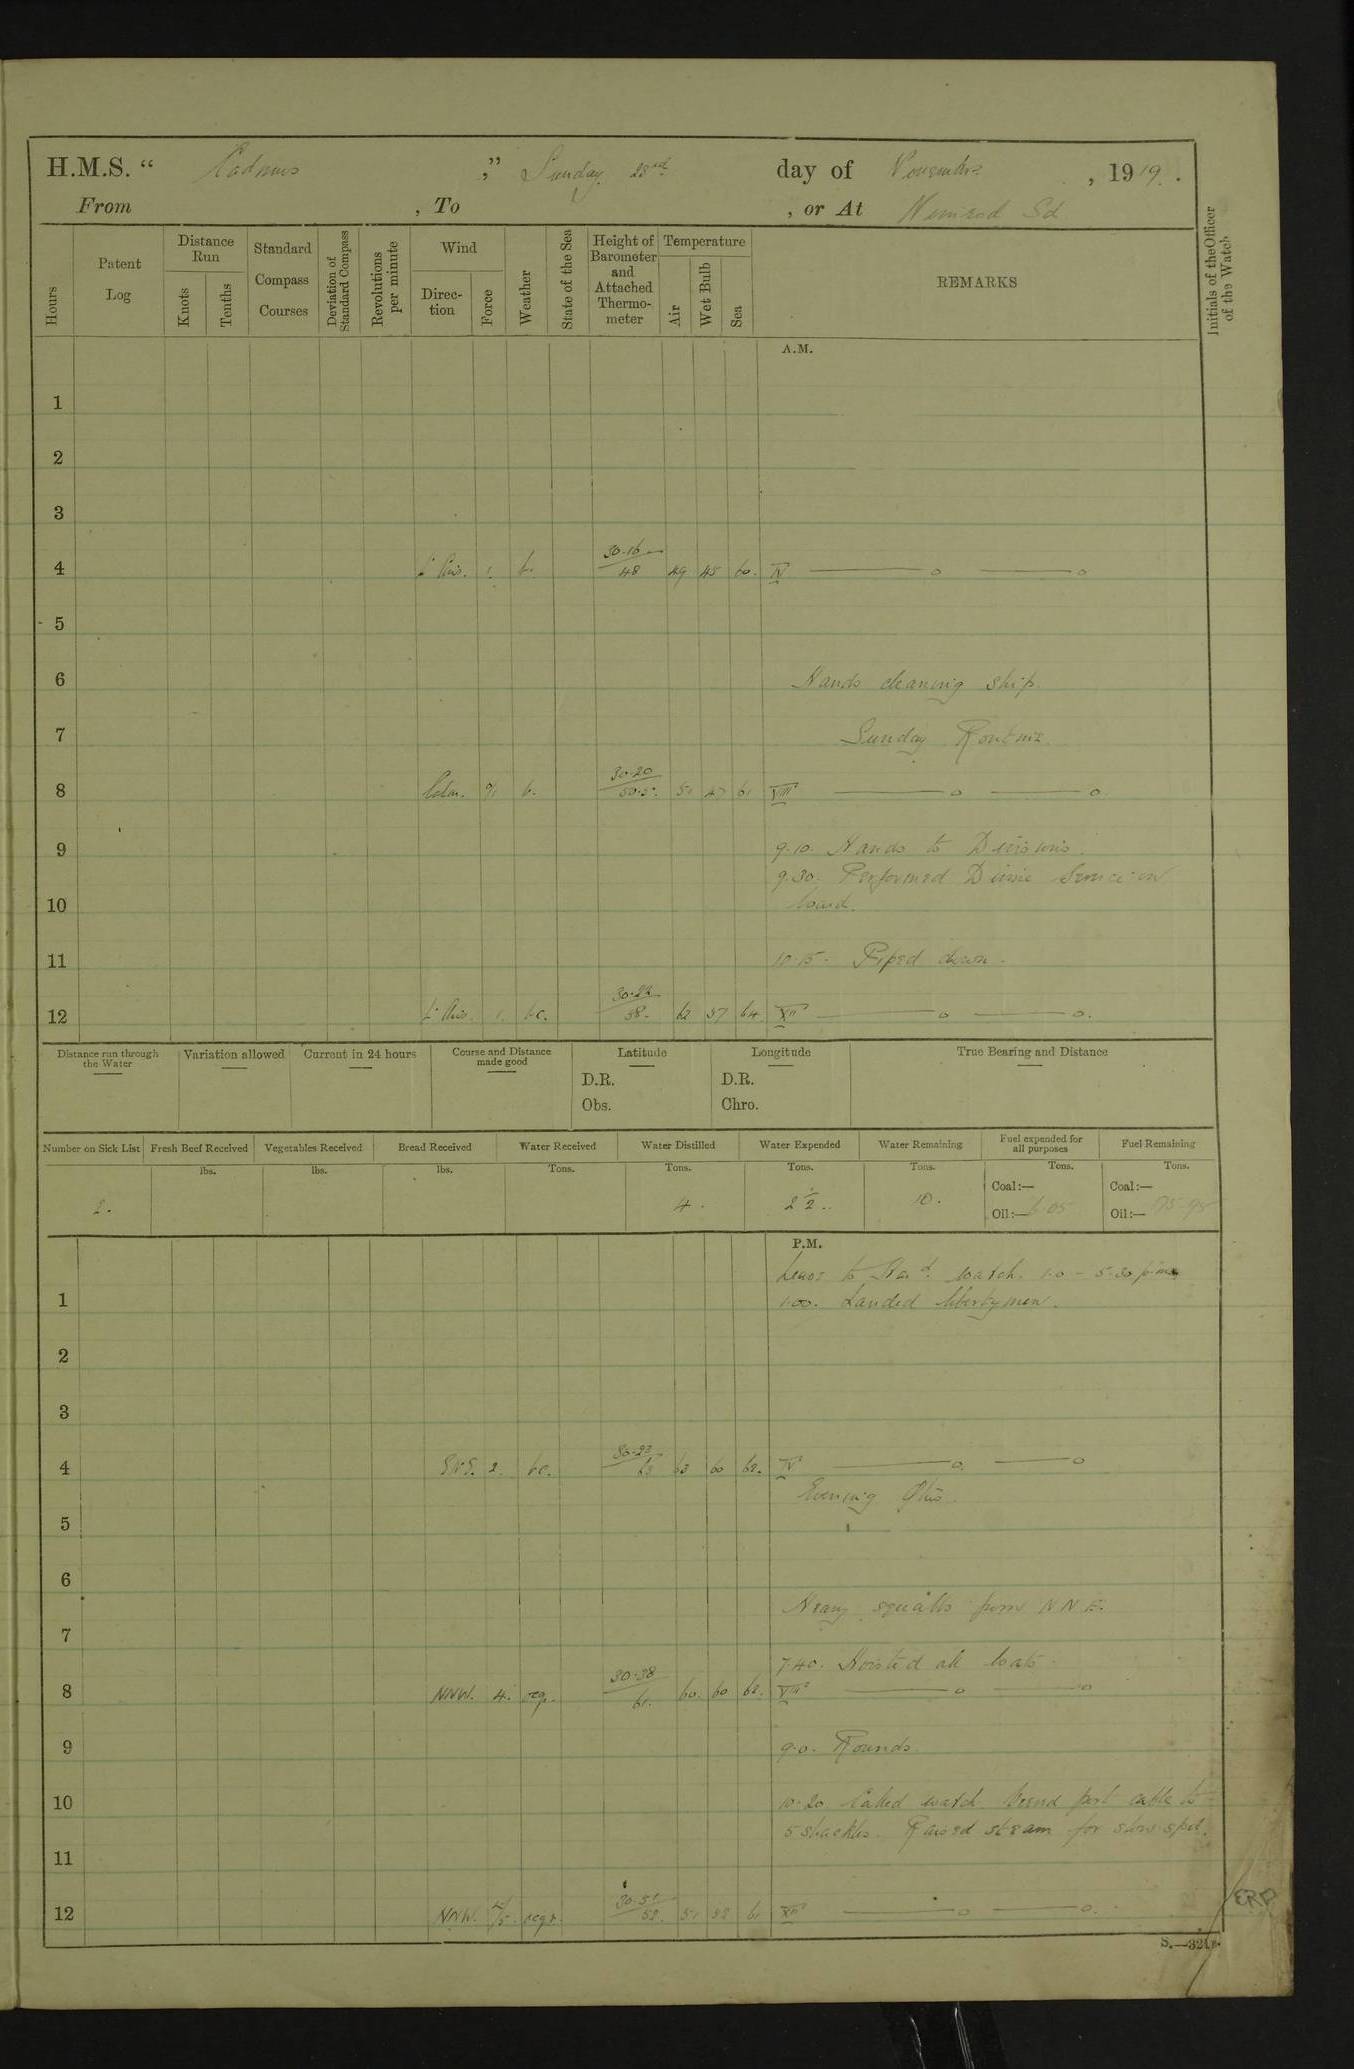 H.M.S. “ Cadmus ,” Sunday 23rd day of November , 1919 .
From , To , or At Nimrod Sd
Hours
Patent Log
Distance Run
Knots
Tenths
Standard Compass Courses
Deviation of Standard Compass
Revolutions per minute
Wind
Direc-tion
Force
Weather
State of the Sea
Height of Barometer and Attached Thermo-meter
Temperature
Air
Wet Bulb
Sea
REMARKS
Initials of the Officer of the Watch
A.M.
1
2
3
4 Lt Airs. 1. b. 30.16 48 49 45 60. IV
5
6 Hands cleaning ship.
7 Sunday Routine.
8 Calm. 0/1 b. 30.20 50.5 51 47 61 VIII
9 9.10. Hands to Divisions.
9.30. Performed Divine Service on
10 board.
11 10.15. Piped down.
12 Lt Airs. 1. bc. 58. 62 57 64 XII
Distance run through the Water
Variation allowed
Current in 24 hours
Course and Distance made good
Latitude
D.R.
Obs.
Longitude
D.R.
Chro.
True Bearing and Distance
Number on Sick List
Fresh Beef Received
Vegetables Received
Bread Received
Water Received
Water Distilled
Water Expended
Water Remaining
Fuel expended for all purposes
Fuel Remaining
lbs. lbs. lbs. Tons. Tons. Tons. Tons. Tons. Tons.
2. 4. 2½. 10.
Coal:— Coal:—
Oil:— Oil:—
P.M.
Leave to Stard. watch. 1.0 - 5.30 p.m.
1 1.00. Landed libertymen.
2
3
4 2. bc. 30.23 63 63 60 62. IV
Evening Qtrs.
5
6
Heavy squalls from NNE.
7
7.40. Hoisted all boats.
8 NNW. 4. 30.38 61. 60. 60 62. VIII
9 9.0. Rounds
10 10.20 Called watch. Veered port cable to
5 shackles. Raised steam for slow speed.
11
12 NNW. 4/5. 30.51 52. 51 61 XII
S.—321.